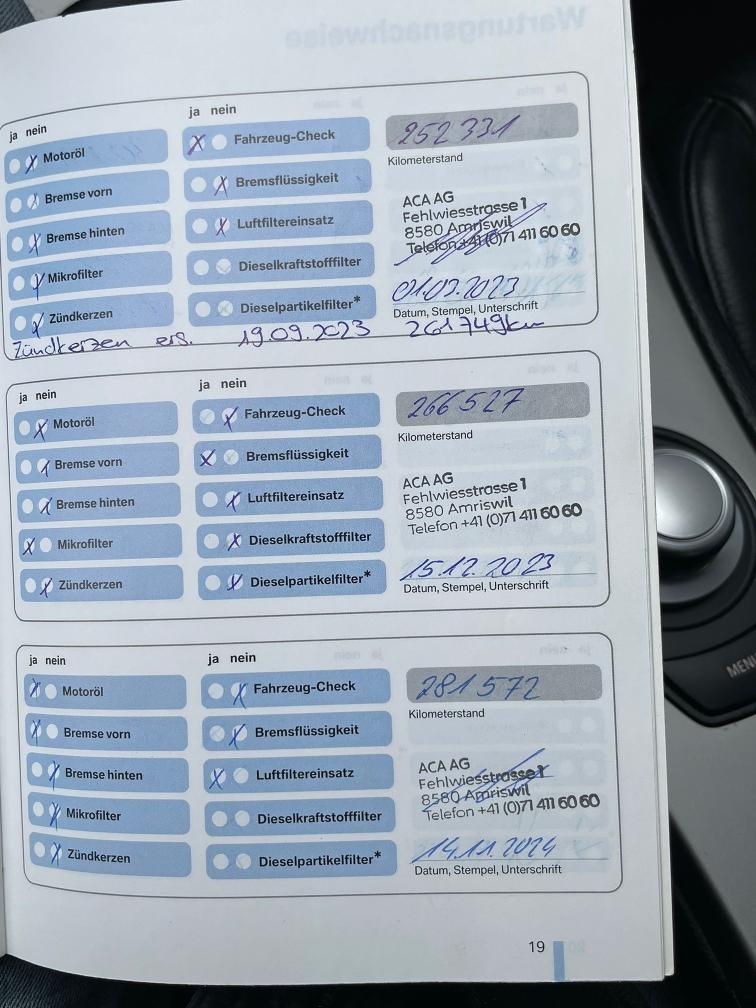 ja nein
Motoröl
Bremse vorn
Bremse hinten
Mikrofilter
Zündkerzen
ja nein
Fahrzeug-Check
Bremsflüssigkeit
Luftfiltereinsatz
Dieselkraftstofffilter
Dieselpartikelfilter*
252 331
Kilometerstand
ACA AG
Fehlwiesstrasse 1
8580 Amriswil
Telefon +41 (0)71 411 60 60
01.02.2023
Datum, Stempel, Unterschrift
Zündkerzen ers. 19.09.2023 261749km
ja nein
Motoröl
Bremse vorn
Bremse hinten
Mikrofilter
Zündkerzen
ja nein
Fahrzeug-Check
Bremsflüssigkeit
Luftfiltereinsatz
Dieselkraftstofffilter
Dieselpartikelfilter*
266 527
Kilometerstand
ACA AG
Fehlwiesstrasse 1
8580 Amriswil
Telefon +41 (0)71 411 60 60
15.12.2023
Datum, Stempel, Unterschrift
ja nein
Motoröl
Bremse vorn
Bremse hinten
Mikrofilter
Zündkerzen
ja nein
Fahrzeug-Check
Bremsflüssigkeit
Luftfiltereinsatz
Dieselkraftstofffilter
Dieselpartikelfilter*
281 572
Kilometerstand
ACA AG
Fehlwiesstrasse 1
8580 Amriswil
Telefon +41 (0)71 411 60 60
14.11.2024
Datum, Stempel, Unterschrift
19